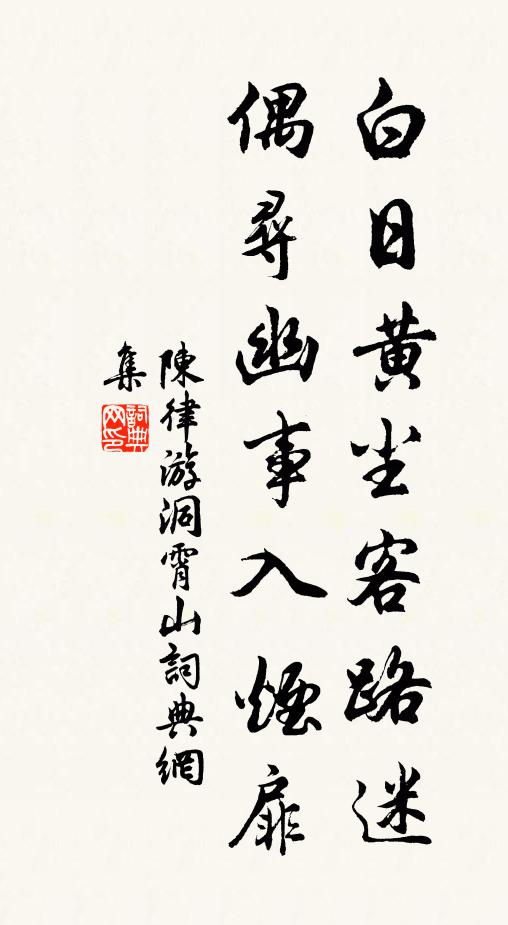 白日黄尘客路迷
偶尋幽事入煙扉
陳律游洞霄山詞典網
集
詞典
网印